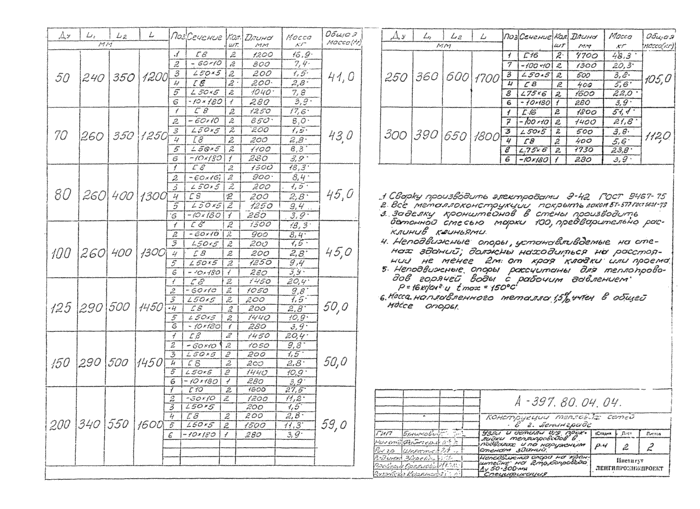 Ду L₁ L₂ L Поз Сечение Кол. шт. Длина мм Масса кг Общая масса(кг)
мм
50 240 350 1200 41,0
1 С8 2 1200 16,9
2 -60×10 2 800 7,4
3 L50×5 2 200 1,5
4 С8 2 200 2,8
5 L50×5 2 1040 7,8
6 -10×180 1 280 3,9
70 260 350 1250 43,0
1 С8 2 1250 17,6
2 -60×10 2 850 8,0
3 L50×5 2 200 1,5
4 С8 2 200 2,8
5 L50×5 2 1100 8,3
6 -10×180 1 280 3,9
80 260 400 1300 45,0
1 С8 2 1300 18,3
2 -60×10 2 900 8,4
3 L50×5 2 200 1,5
4 С8 2 200 2,8
5 L50×5 2 1250 9,4
6 -10×180 1 280 3,9
100 260 400 1300 45,0
1 С8 2 1300 18,3
2 -60×10 2 900 8,4
3 L50×5 2 200 1,5
4 С8 2 200 2,8
5 L50×5 2 1250 9,4
6 -10×180 1 280 3,9
125 290 500 1450 50,0
1 С8 2 1450 20,4
2 -60×10 2 1050 9,8
3 L50×5 2 200 1,5
4 С8 2 200 2,8
5 L50×5 2 1440 10,9
6 -10×180 1 280 3,9
150 290 500 1450 50,0
1 С8 2 1450 20,4
2 -60×10 2 1050 9,8
3 L50×5 2 200 1,5
4 С8 2 200 2,8
5 L50×5 2 1440 10,9
6 -10×180 1 280 3,9
200 340 550 1600 59,0
1 1600 27,5
2 1200 11,2
3 L50×5 200 1,5
4 С8 2 200 2,8
5 L50×5 2 1500 11,3
6 -10×180 1 280 3,9
Ду L₁ L₂ L Поз Сечение Кол. шт Длина мм Масса кг Общая масса(кг)
мм
250 360 600 1700 105,0
1 С16 2 1700 48,3
2 -100×10 2 1300 20,3
3 L50×5 2 500 3,8
4 С8 2 400 5,6
5 L75×6 2 1600 22,0
6 -10×180 1 280 3,9
300 390 650 1800 112,0
1 С16 2 1800 51,1
2 -100×10 2 1400 21,8
3 L50×5 2 500 3,8
4 С8 2 400 5,6
5 L75×6 2 1730 23,8
6 -10×180 1 280 3,9
1 Сварку производить электродами Э-42 ГОСТ 9467-75
2. Все металлоконструкции покрыть
3. Заделку кронштейнов в стены производить
бетонной смесью марки 100, предварительно рас-
клинив клиньями.
4. Неподвижные опоры, устанавливаемые на сте-
нах зданий, должны находиться на расстоя-
нии не менее 2м от края кладки или проема.
5. Неподвижные опоры рассчитаны для теплопрово-
дов горячей воды с рабочим давлением
P=16кг/см² и tmax=150°С
6. Масса наплавленного металла 1,5% учтен в общей
массе опоры.
А-397.80.04.04.
Конструкции тепловых сетей
в г. Ленинграде
ГИП
Узлы и детали для прок-
ладки теплопроводов в
подвалах и по наружным
стенам зданий.
Р.Ч 2 2
Неподвижная опора на крон-
штейне на 2 трубопровода
Ду 50-300мм
Спецификация
Институт
ЛЕНГИПРОИНЖПРОЕКТ